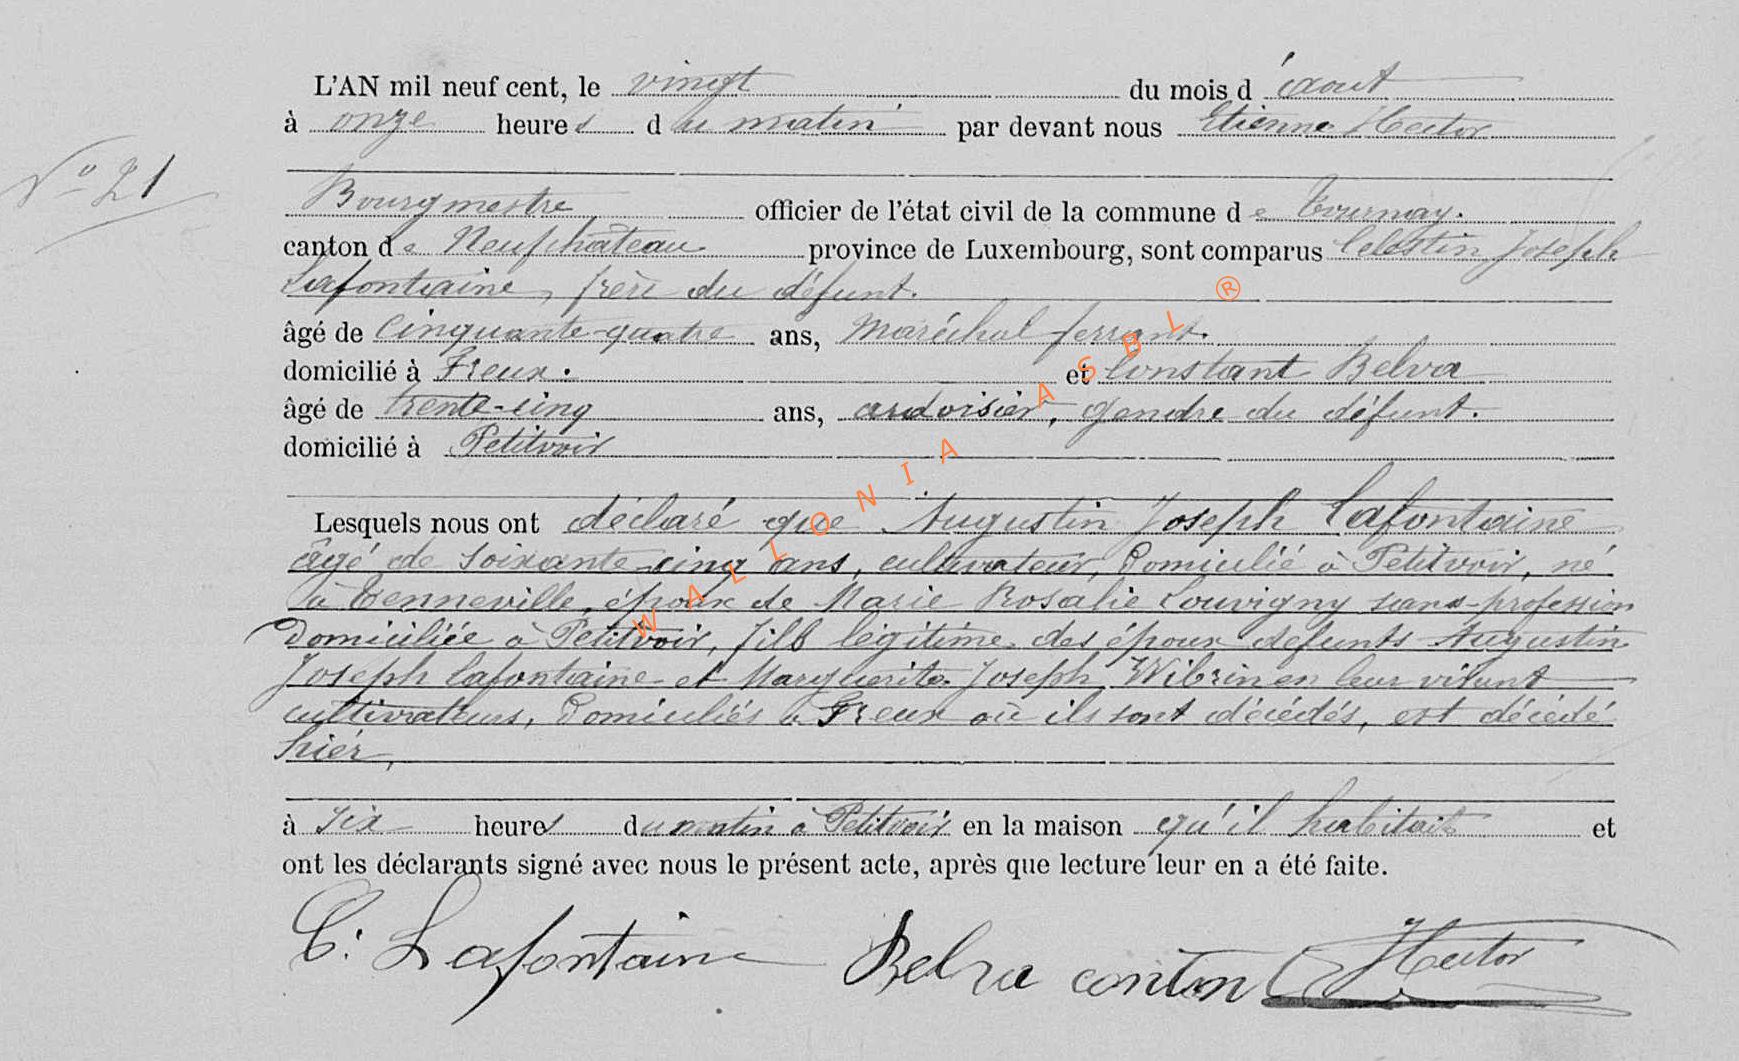 L'AN mil neuf cent, le vingt du mois d'août
à onze heures du matin par devant nous Etienne Hector
N° 21
Bourgmestre officier de l'état civil de la commune de Tournay.
canton de Neufchâteau province de Luxembourg, sont comparus Célestin Joseph
Lafontaine, frère du défunt.
âgé de cinquante-quatre ans, Maréchal-ferrant.
domicilié à Freux. et Constant Belva
âgé de trente-cinq ans, ardoisier, gendre du défunt.
domicilié à Petitvoir
Lesquels nous ont déclaré que Augustin Joseph Lafontaine
âgé de soixante-cinq ans, cultivateur, Domicilié à Petitvoir, né
à Tenneville, époux de Marie Rosalie Louvigny sans-profession
Domiciliée à Petitvoir, fils légitime des époux défunts Augustin
Joseph Lafontaine et Marguerite Joseph Wibrin en leur vivant
cultivateurs, Domiciliés à Freux où ils sont décédés, est décédé
hier,
à six heures du matin à Petitvoir en la maison qu'il habitait et
ont les déclarants signé avec nous le présent acte, après que lecture leur en a été faite.
C. Lafontaine Belva Hector
WALLONIA ASBL ®